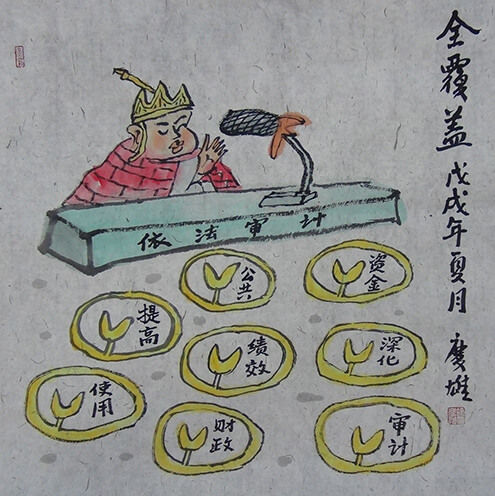 全覆盖 戊戌年夏月 广雄
依法审计
公共
资金
提高
绩效
深化
使用
财政
审计